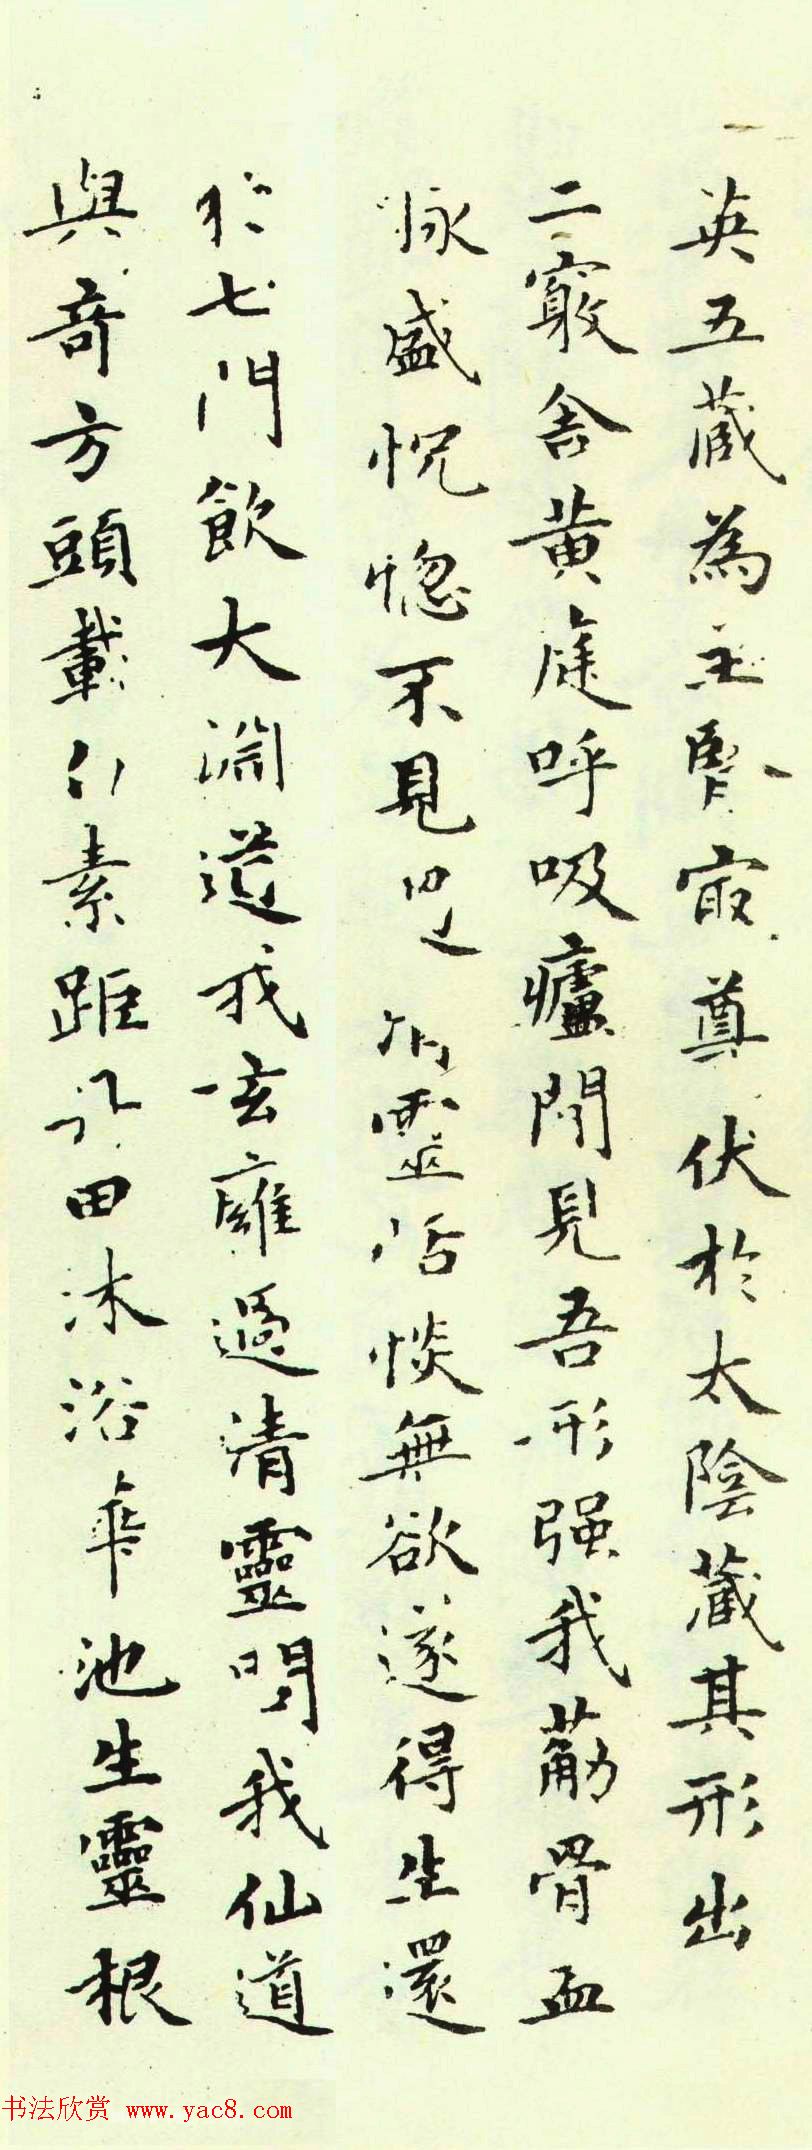 英五藏為主腎㝡尊伏於太陰藏其形出
二竅舍黃庭呼吸廬間見吾形强我筋骨血
脉盛怳惚不見過清靈恬惔無欲遂得生還
於七門飲大淵道我玄廱過清靈問我仙道
與奇方頭載白素距丹田沐浴華池生靈根
书法欣赏 www.yac8.com